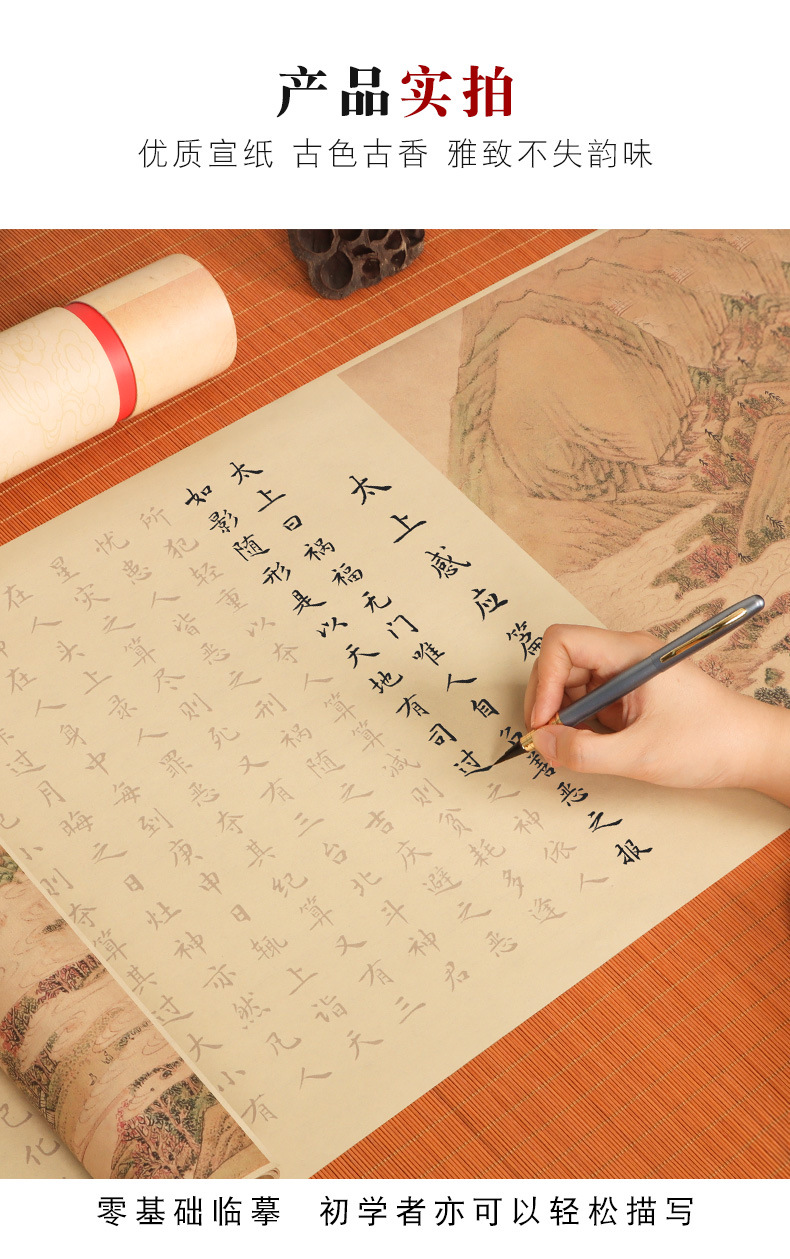 产品实拍
优质宣纸 古色古香 雅致不失韵味
太上感应篇
太上曰祸福无门唯人自召善恶之报
如影随形是以天地有司过之神依人
所犯轻重以夺人算算减则贫耗多逢
忧患人皆恶之刑祸随之吉庆避之恶
星灾之算尽则死又有三台北斗神君
在人头上录人罪恶夺其纪算又有三
神在人身中每到庚申日辄上诣天
过月晦之日灶神亦然凡人
小则夺算其过大小有
化
零基础临摹 初学者亦可以轻松描写